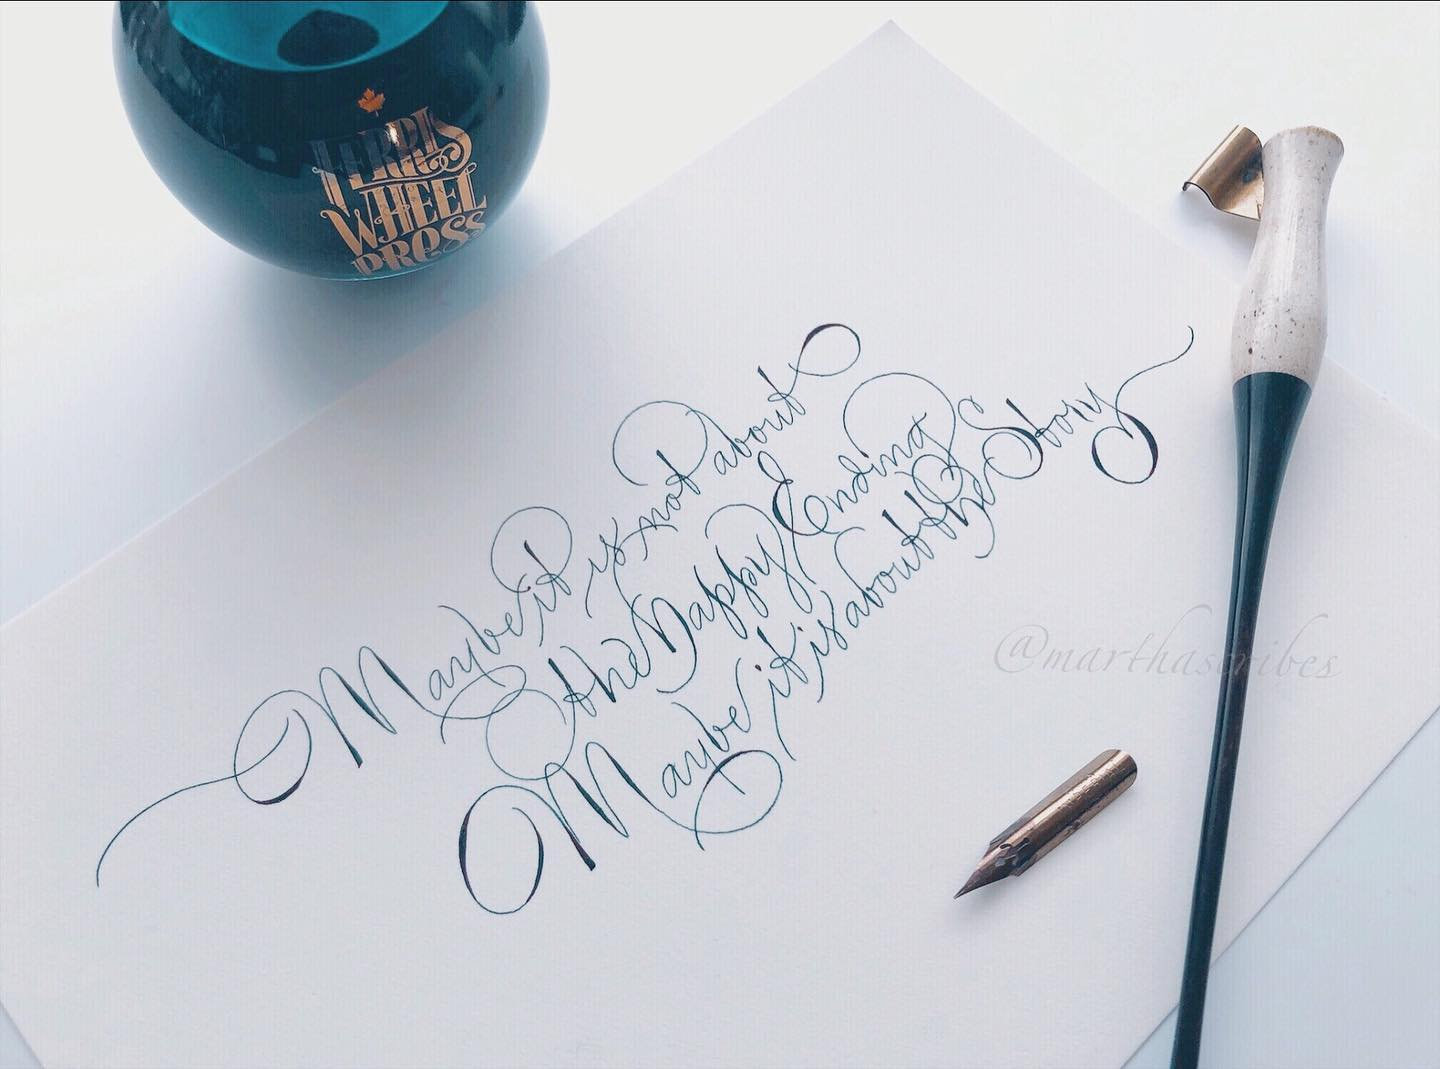 FERRIS
WHEEL
PRESS
Maybe it is not about
the Happy Ending
Maybe it is about the Story
@marthascribes